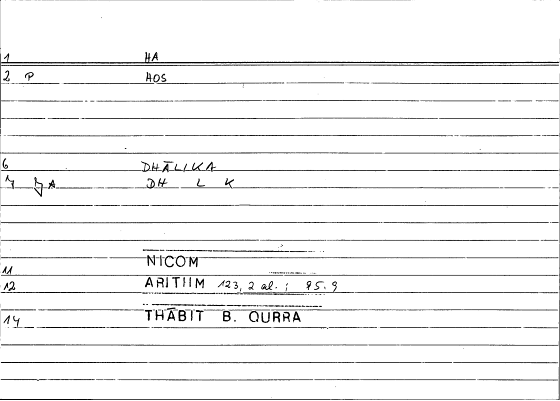 1 HA
2 P HOS
6 DHĀLIKA
A DH L K
11 NICOM
12 ARITHM 123, 2 al. ; 95.9
14 THĀBIT B. QURRA